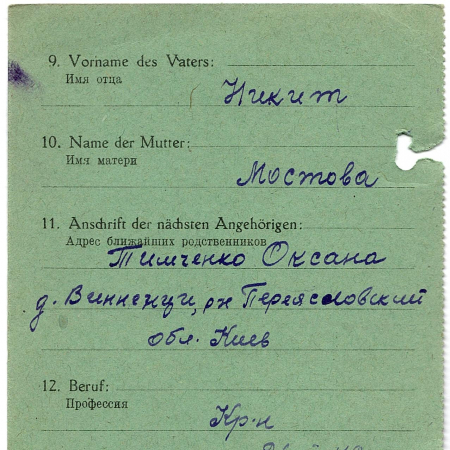 9. Vorname des Vaters:
Имя отца
Никит
10. Name der Mutter:
Имя матери
Мостова
11. Anschrift der nächsten Angehörigen:
Адрес ближайших родственников
Тимченко Оксана
д. Винненци, рн Переясловский
обл. Киев
12. Beruf:
Профессия
Кр-н